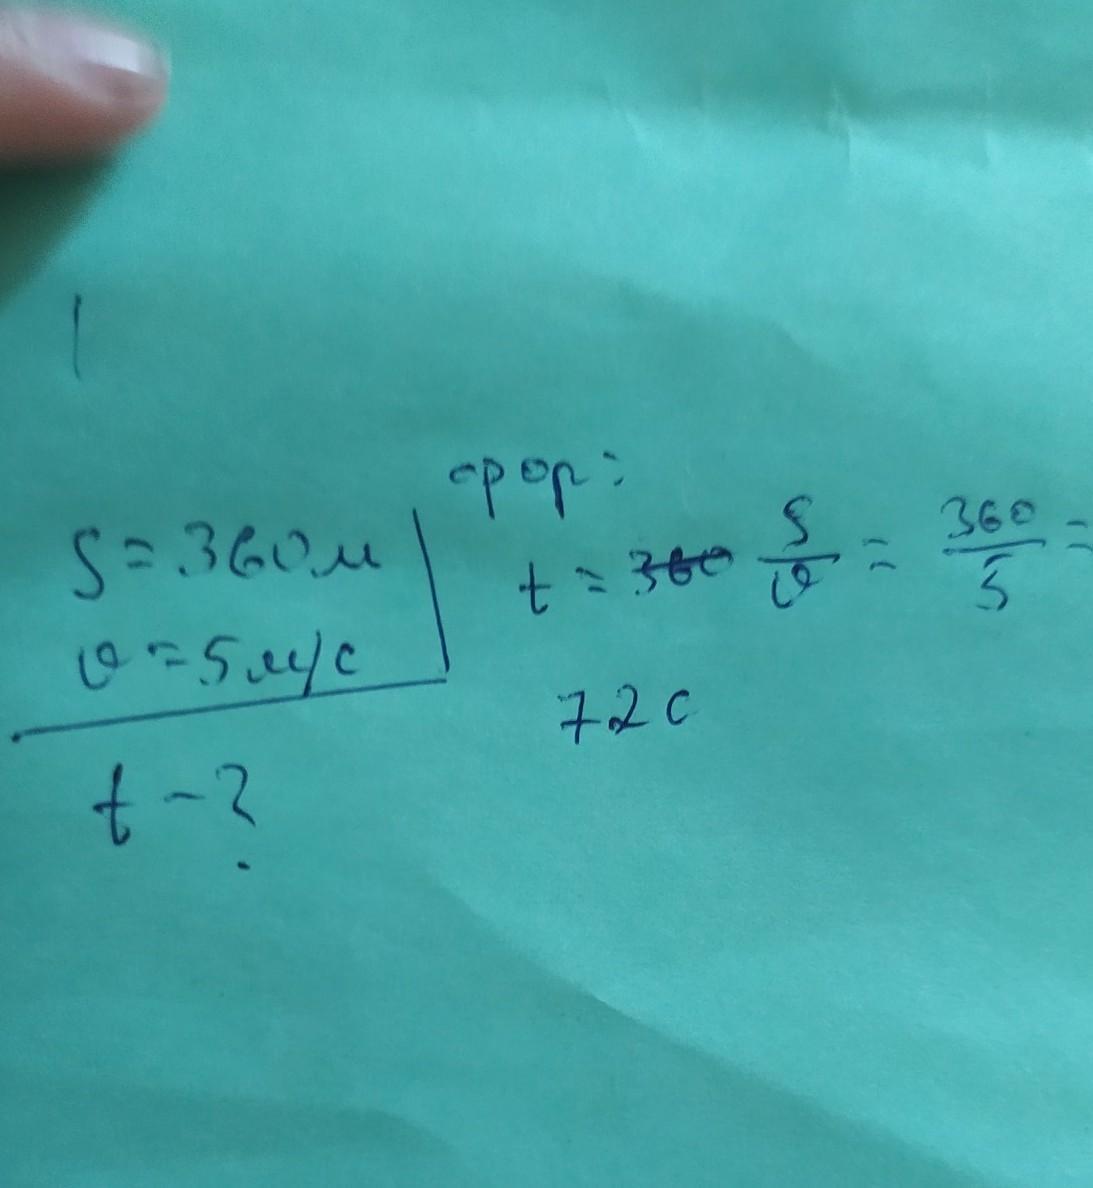 S = 360 м
υ = 5 м/с
t - ?
фор:
t = ~~360~~ S/υ = 360/5 =
72 с